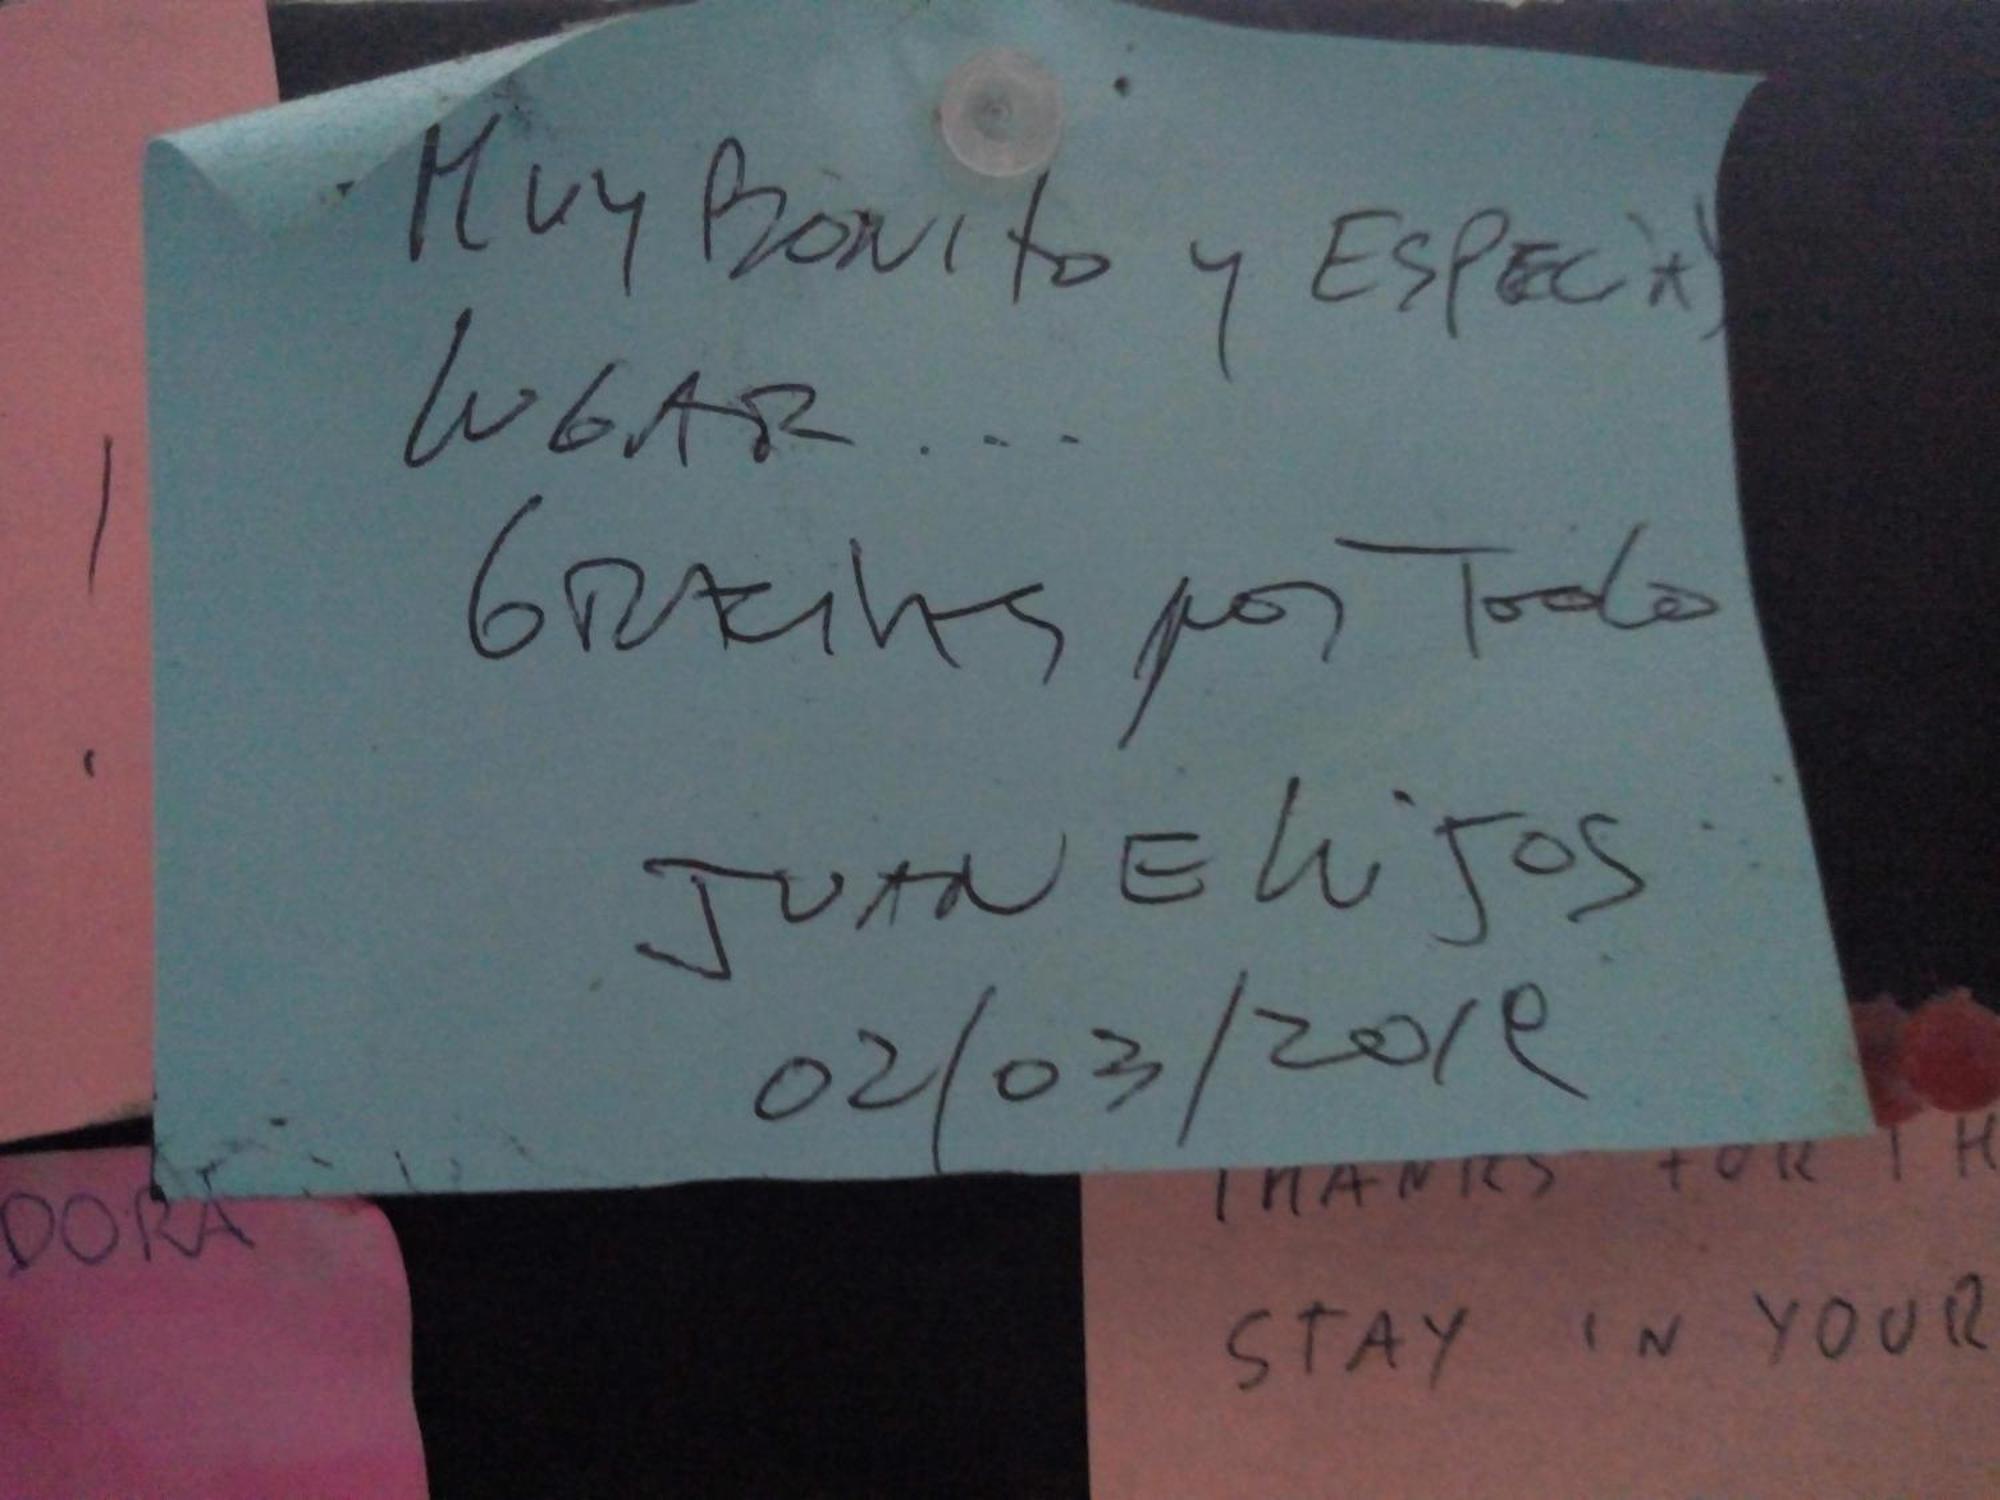 MUY BONITO y ESPECIAL
LUGAR....
GRACIAS por Todo
JUAN E HIJOS
02/03/2019
DORA
THANKS FOR TH
STAY IN YOUR